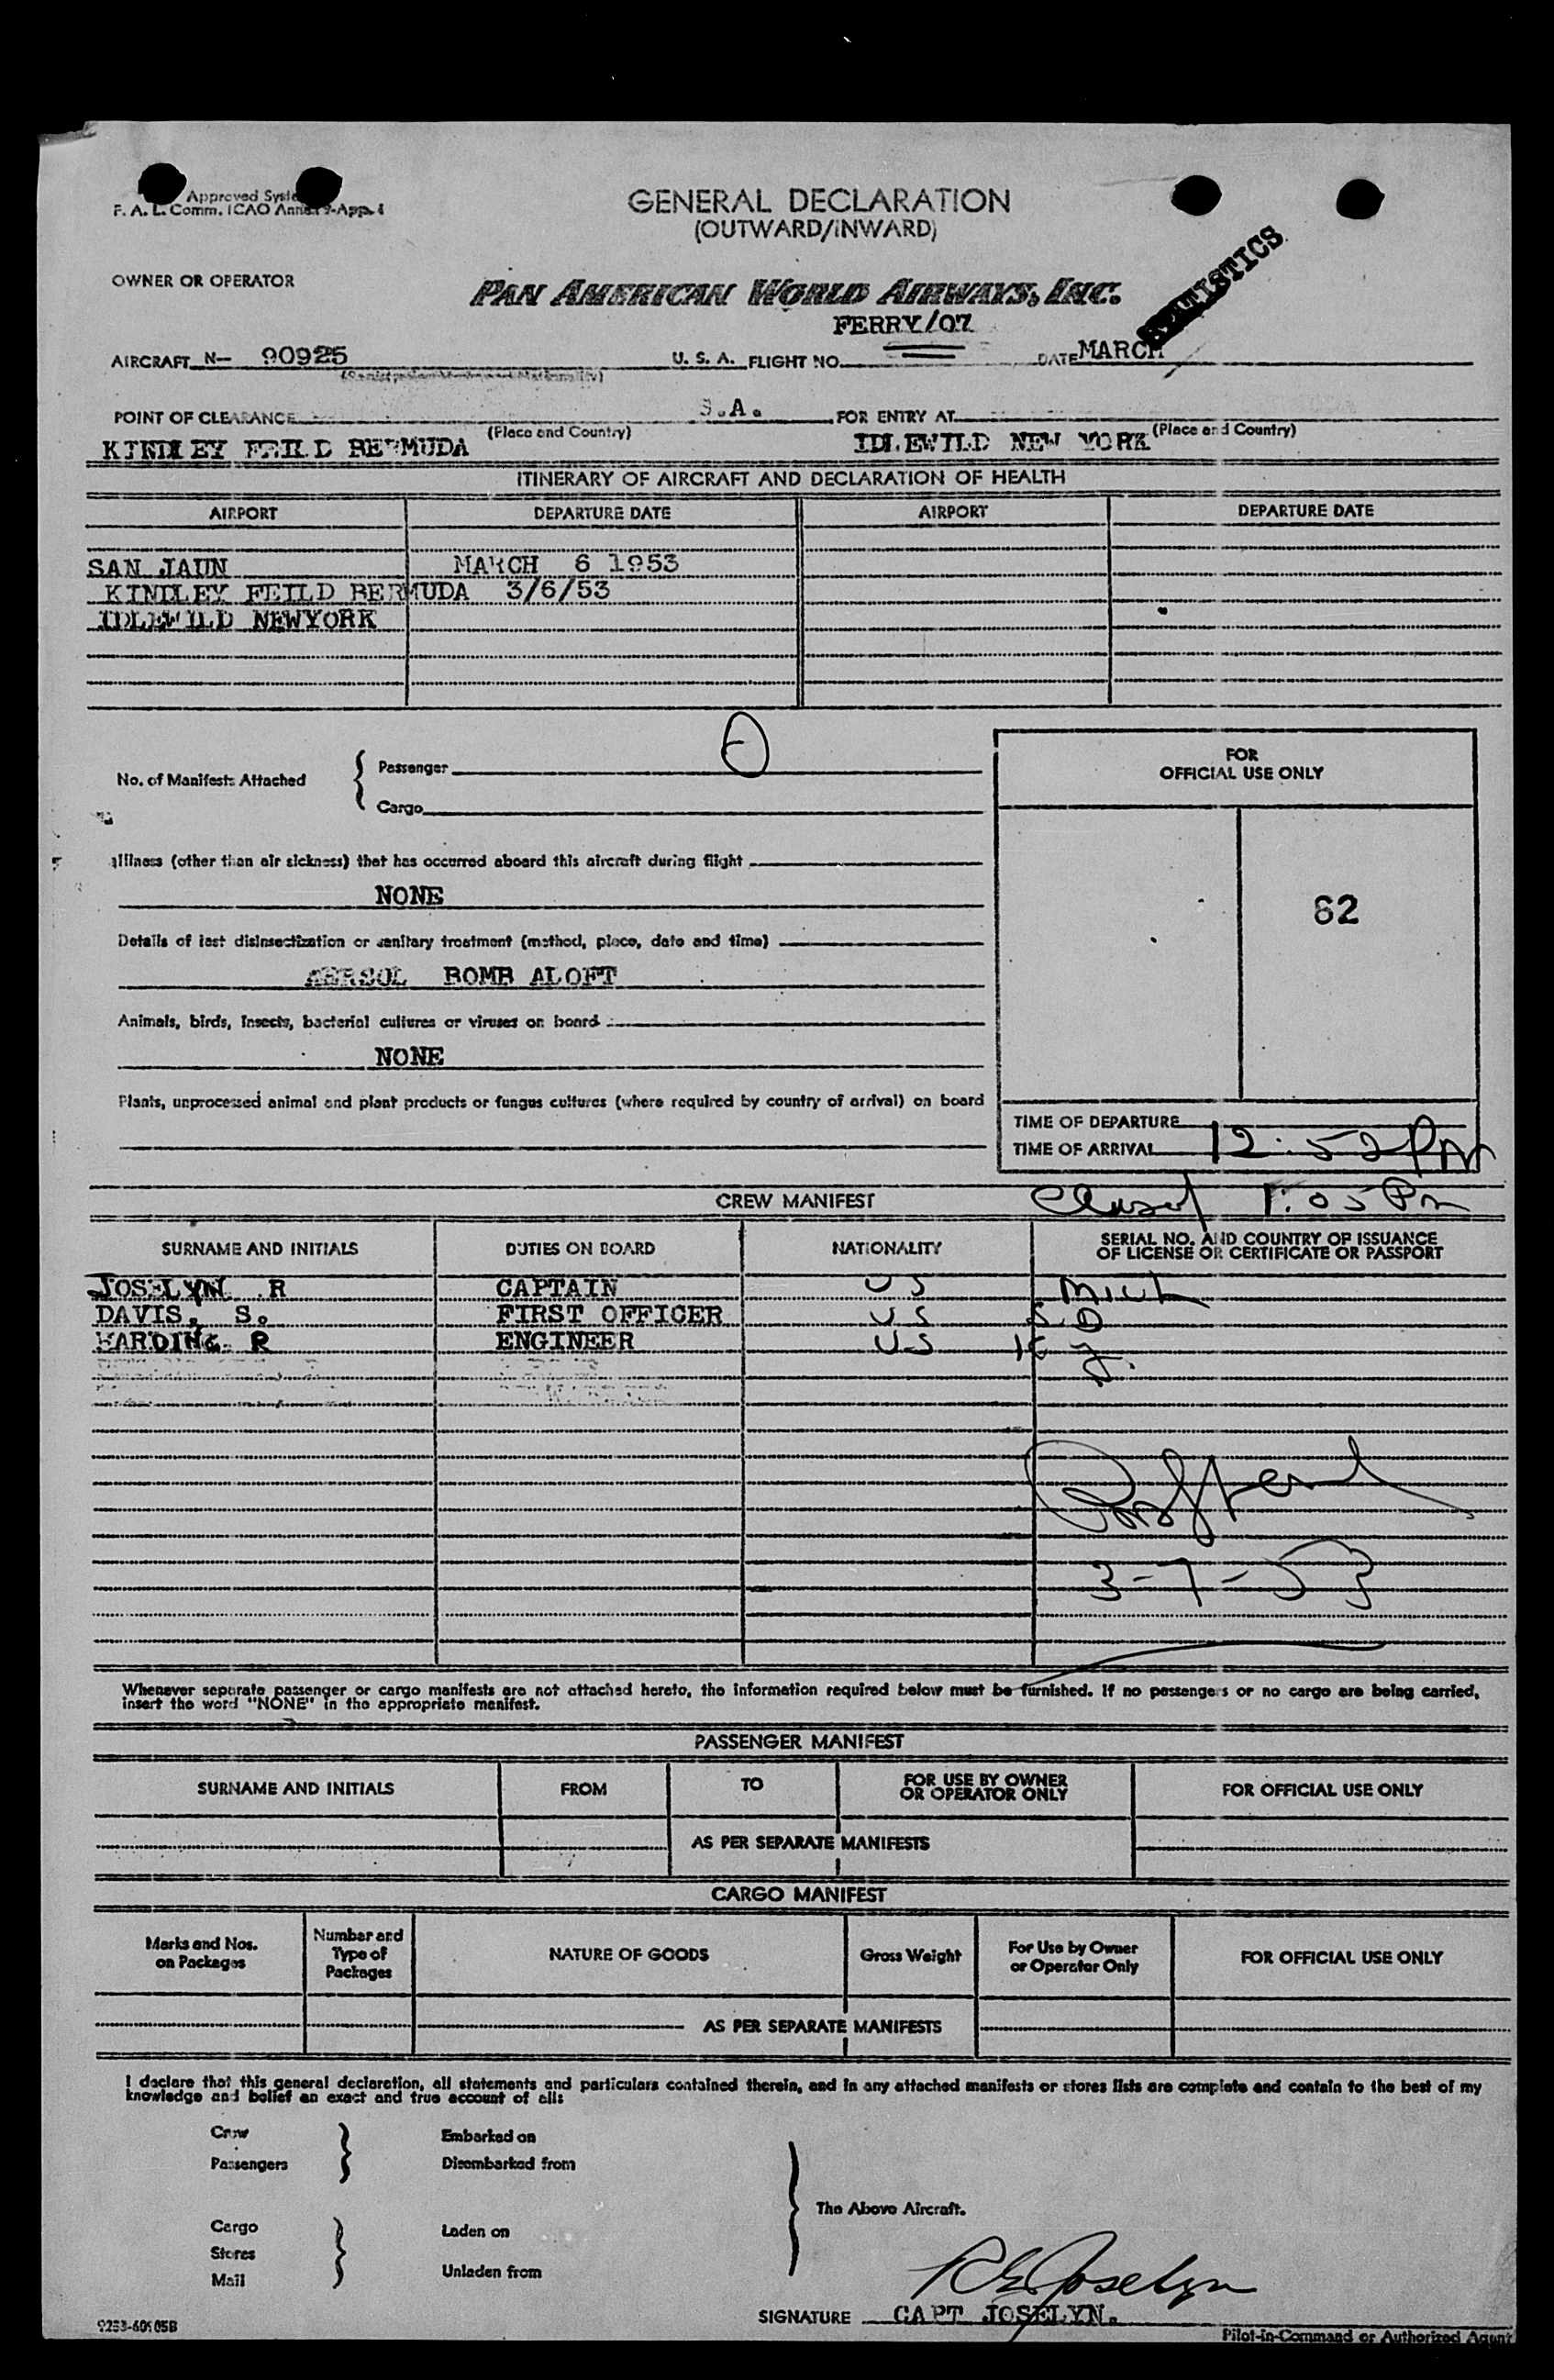 Approved
F. A. L. Comm. ICAO Annex 9-App. 1
GENERAL DECLARATION
(OUTWARD/INWARD)
OWNER OR OPERATOR
PAN AMERICAN WORLD AIRWAYS, INC.
FERRY/07
AIRCRAFT N- 90925 U. S. A. FLIGHT NO. DATE MARCH
POINT OF CLEARANCE S.A. FOR ENTRY AT
(Place and Country) (Place and Country)
KINDLEY FEILD BERMUDA IDLEWILD NEW YORK
ITINERARY OF AIRCRAFT AND DECLARATION OF HEALTH
AIRPORT DEPARTURE DATE AIRPORT DEPARTURE DATE
SAN JAUN MARCH 6 1953
KINDLEY FEILD BERMUDA 3/6/53
IDLEWILD NEWYORK
No. of Manifests Attached
Passenger
Cargo
FOR
OFFICIAL USE ONLY
62
Illness (other than air sickness) that has occurred aboard this aircraft during flight
NONE
Details of last disinsectization or sanitary treatment (method, place, date and time)
AERSOL BOMB ALOFT
Animals, birds, insects, bacterial cultures or viruses on board
NONE
Plants, unprocessed animal and plant products or fungus cultures (where required by country of arrival) on board
TIME OF DEPARTURE
TIME OF ARRIVAL 12:52 PM
CREW MANIFEST Closed 1:05 PM
SURNAME AND INITIALS DUTIES ON BOARD NATIONALITY SERIAL NO. AND COUNTRY OF ISSUANCE
OF LICENSE OR CERTIFICATE OR PASSPORT
JOSELYN R CAPTAIN US Mich
DAVIS, S. FIRST OFFICER US S.D
HARDING R ENGINEER US Ky.
3-7-53
Whenever separate passenger or cargo manifests are not attached hereto, the information required below must be furnished. If no passengers or no cargo are being carried,
insert the word "NONE" in the appropriate manifest.
PASSENGER MANIFEST
SURNAME AND INITIALS FROM TO FOR USE BY OWNER
OR OPERATOR ONLY FOR OFFICIAL USE ONLY
AS PER SEPARATE MANIFESTS
CARGO MANIFEST
Marks and Nos.
on Packages
Number and
Type of
Packages
NATURE OF GOODS
Gross Weight
For Use by Owner
or Operator Only
FOR OFFICIAL USE ONLY
AS PER SEPARATE MANIFESTS
I declare that this general declaration, all statements and particulars contained therein, and in any attached manifests or stores lists are complete and contain to the best of my
knowledge and belief an exact and true account of all:
Crew Embarked on
Passengers Disembarked from
The Above Aircraft.
Cargo Laden on
Stores
Mail Unladen from
R E Joselyn
SIGNATURE CAPT JOSELYN.
Pilot-in-Command or Authorized Agent